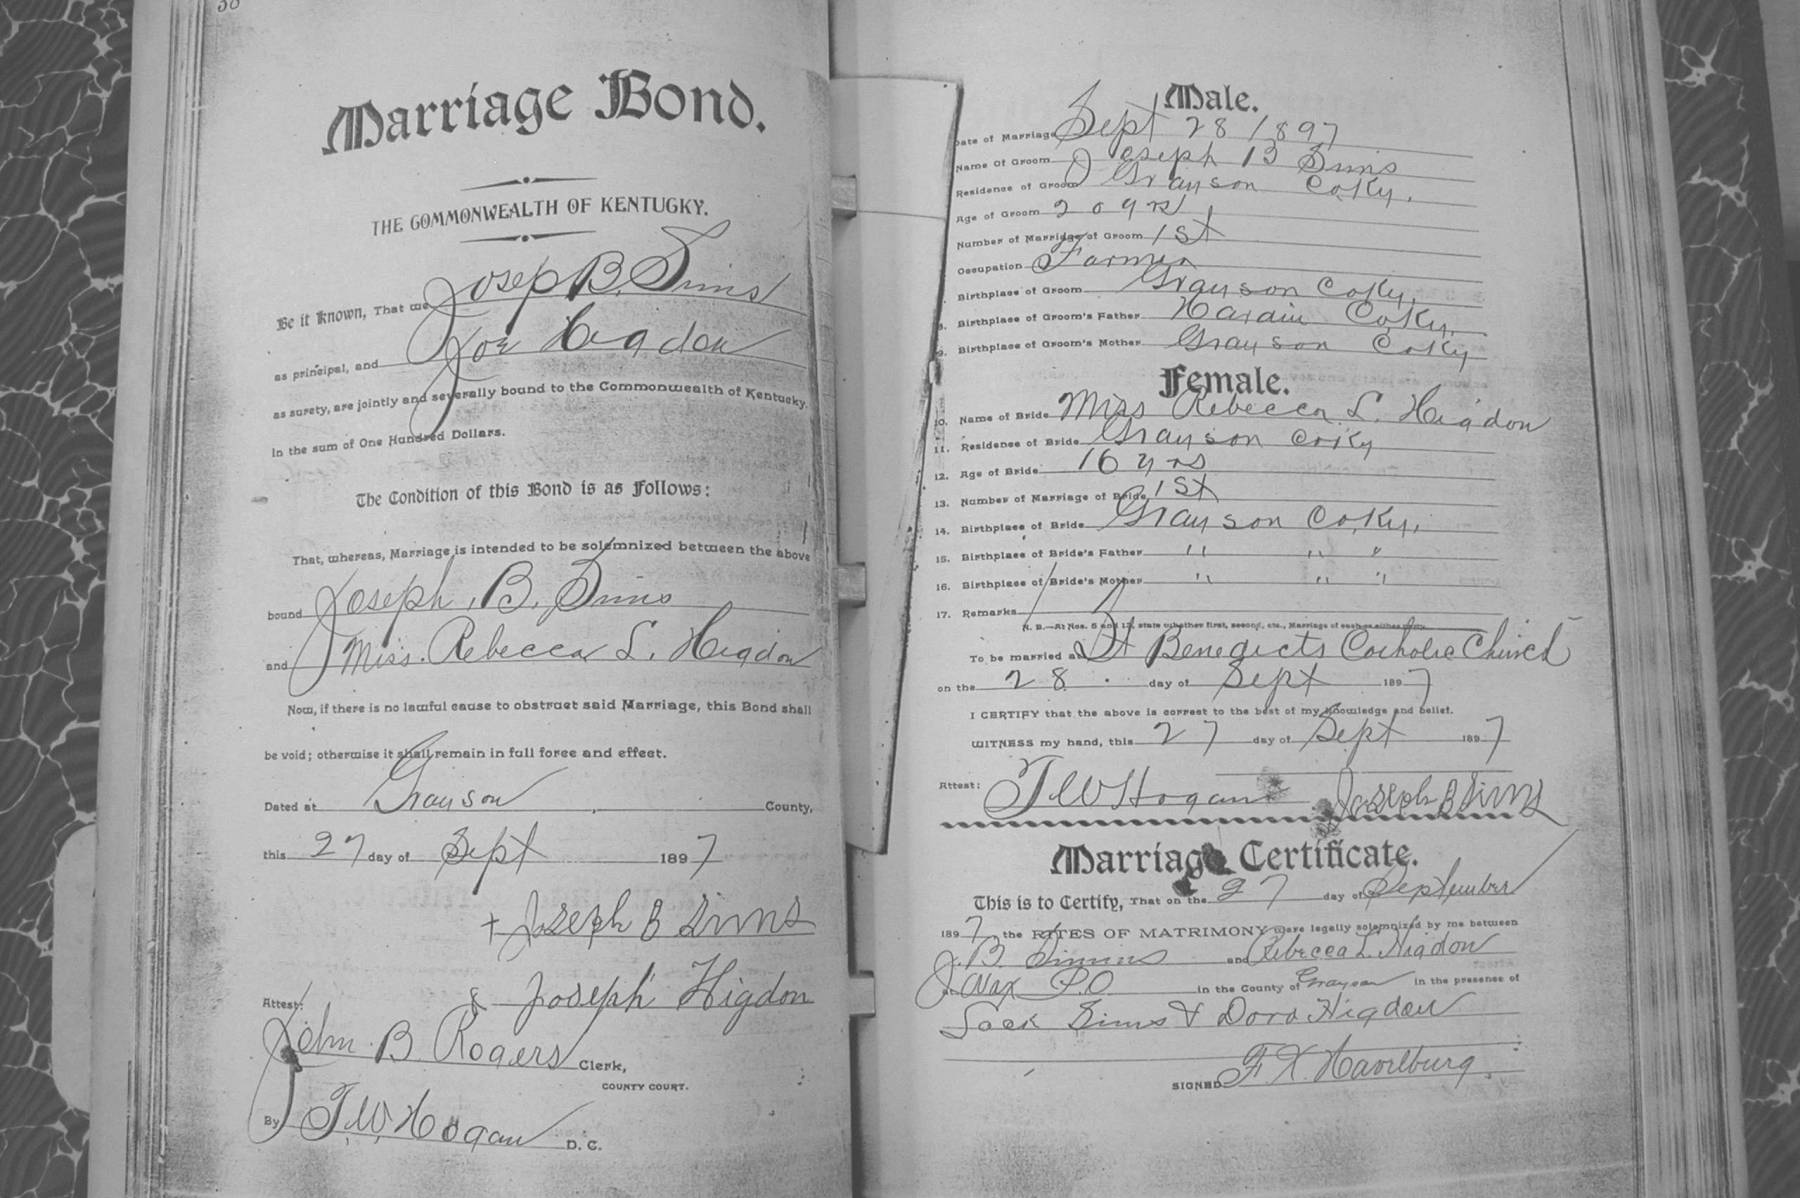 38
Marriage Bond.
THE COMMONWEALTH OF KENTUCKY.
Be it Known, That we Josep B. Sims
as principal, and Joe Higdon
as surety, are jointly and severally bound to the Commonwealth of Kentucky,
in the sum of One Hundred Dollars.
The Condition of this Bond is as Follows:
That, whereas, Marriage is intended to be solemnized between the above
bound Joseph, B, Sims
and Miss. Rebecca L. Higdon
Now, if there is no lawful cause to obstruct said Marriage, this Bond shall
be void; otherwise it shall remain in full force and effect.
Dated at Grayson County,
this 27 day of Sept 1897
+ Joseph B Sims
& Joseph Higdon
Attest:
John B Rogers Clerk,
COUNTY COURT.
By T.W. Hogan D. C.
Male.
Date of Marriage Sept 28 1897
Name Of Groom Joseph B Sims
Residence of Groom Grayson Co Ky.
Age of Groom 20 yrs
Number of Marriage of Groom 1st
Occupation Farmer
Birthplace of Groom Grayson Co Ky.
8. Birthplace of Groom's Father Hardin Co Ky.
9. Birthplace of Groom's Mother Grayson Co Ky
Female.
10. Name of Bride Miss Rebecca L. Higdon
11. Residence of Bride Grayson Co Ky
12. Age of Bride 16 yrs
13. Number of Marriage of Bride 1st
14. Birthplace of Bride Grayson Co, Ky,
15. Birthplace of Bride's Father " " "
16. Birthplace of Bride's Mother " " "
17. Remarks
N. B.—At Nos. 5 and 13, state whether first, second, etc., Marriage of each or either party.
To be married at St Benedicts Catholic Church
on the 28 day of Sept 1897
I CERTIFY that the above is correct to the best of my knowledge and belief.
WITNESS my hand, this 27 day of Sept 1897
Attest: T W Hogan Joseph B Sims
Marriage Certificate.
This is to Certify, That on the 27 day of September
1897, the RITES OF MATRIMONY were legally solemnized by me between
J. B. Simms and Rebecca L. Higdon
at Wax P.O in the County of Grayson in the presence of
Jack Sims & Dora Higdon
SIGNED F. X. Havelburg.